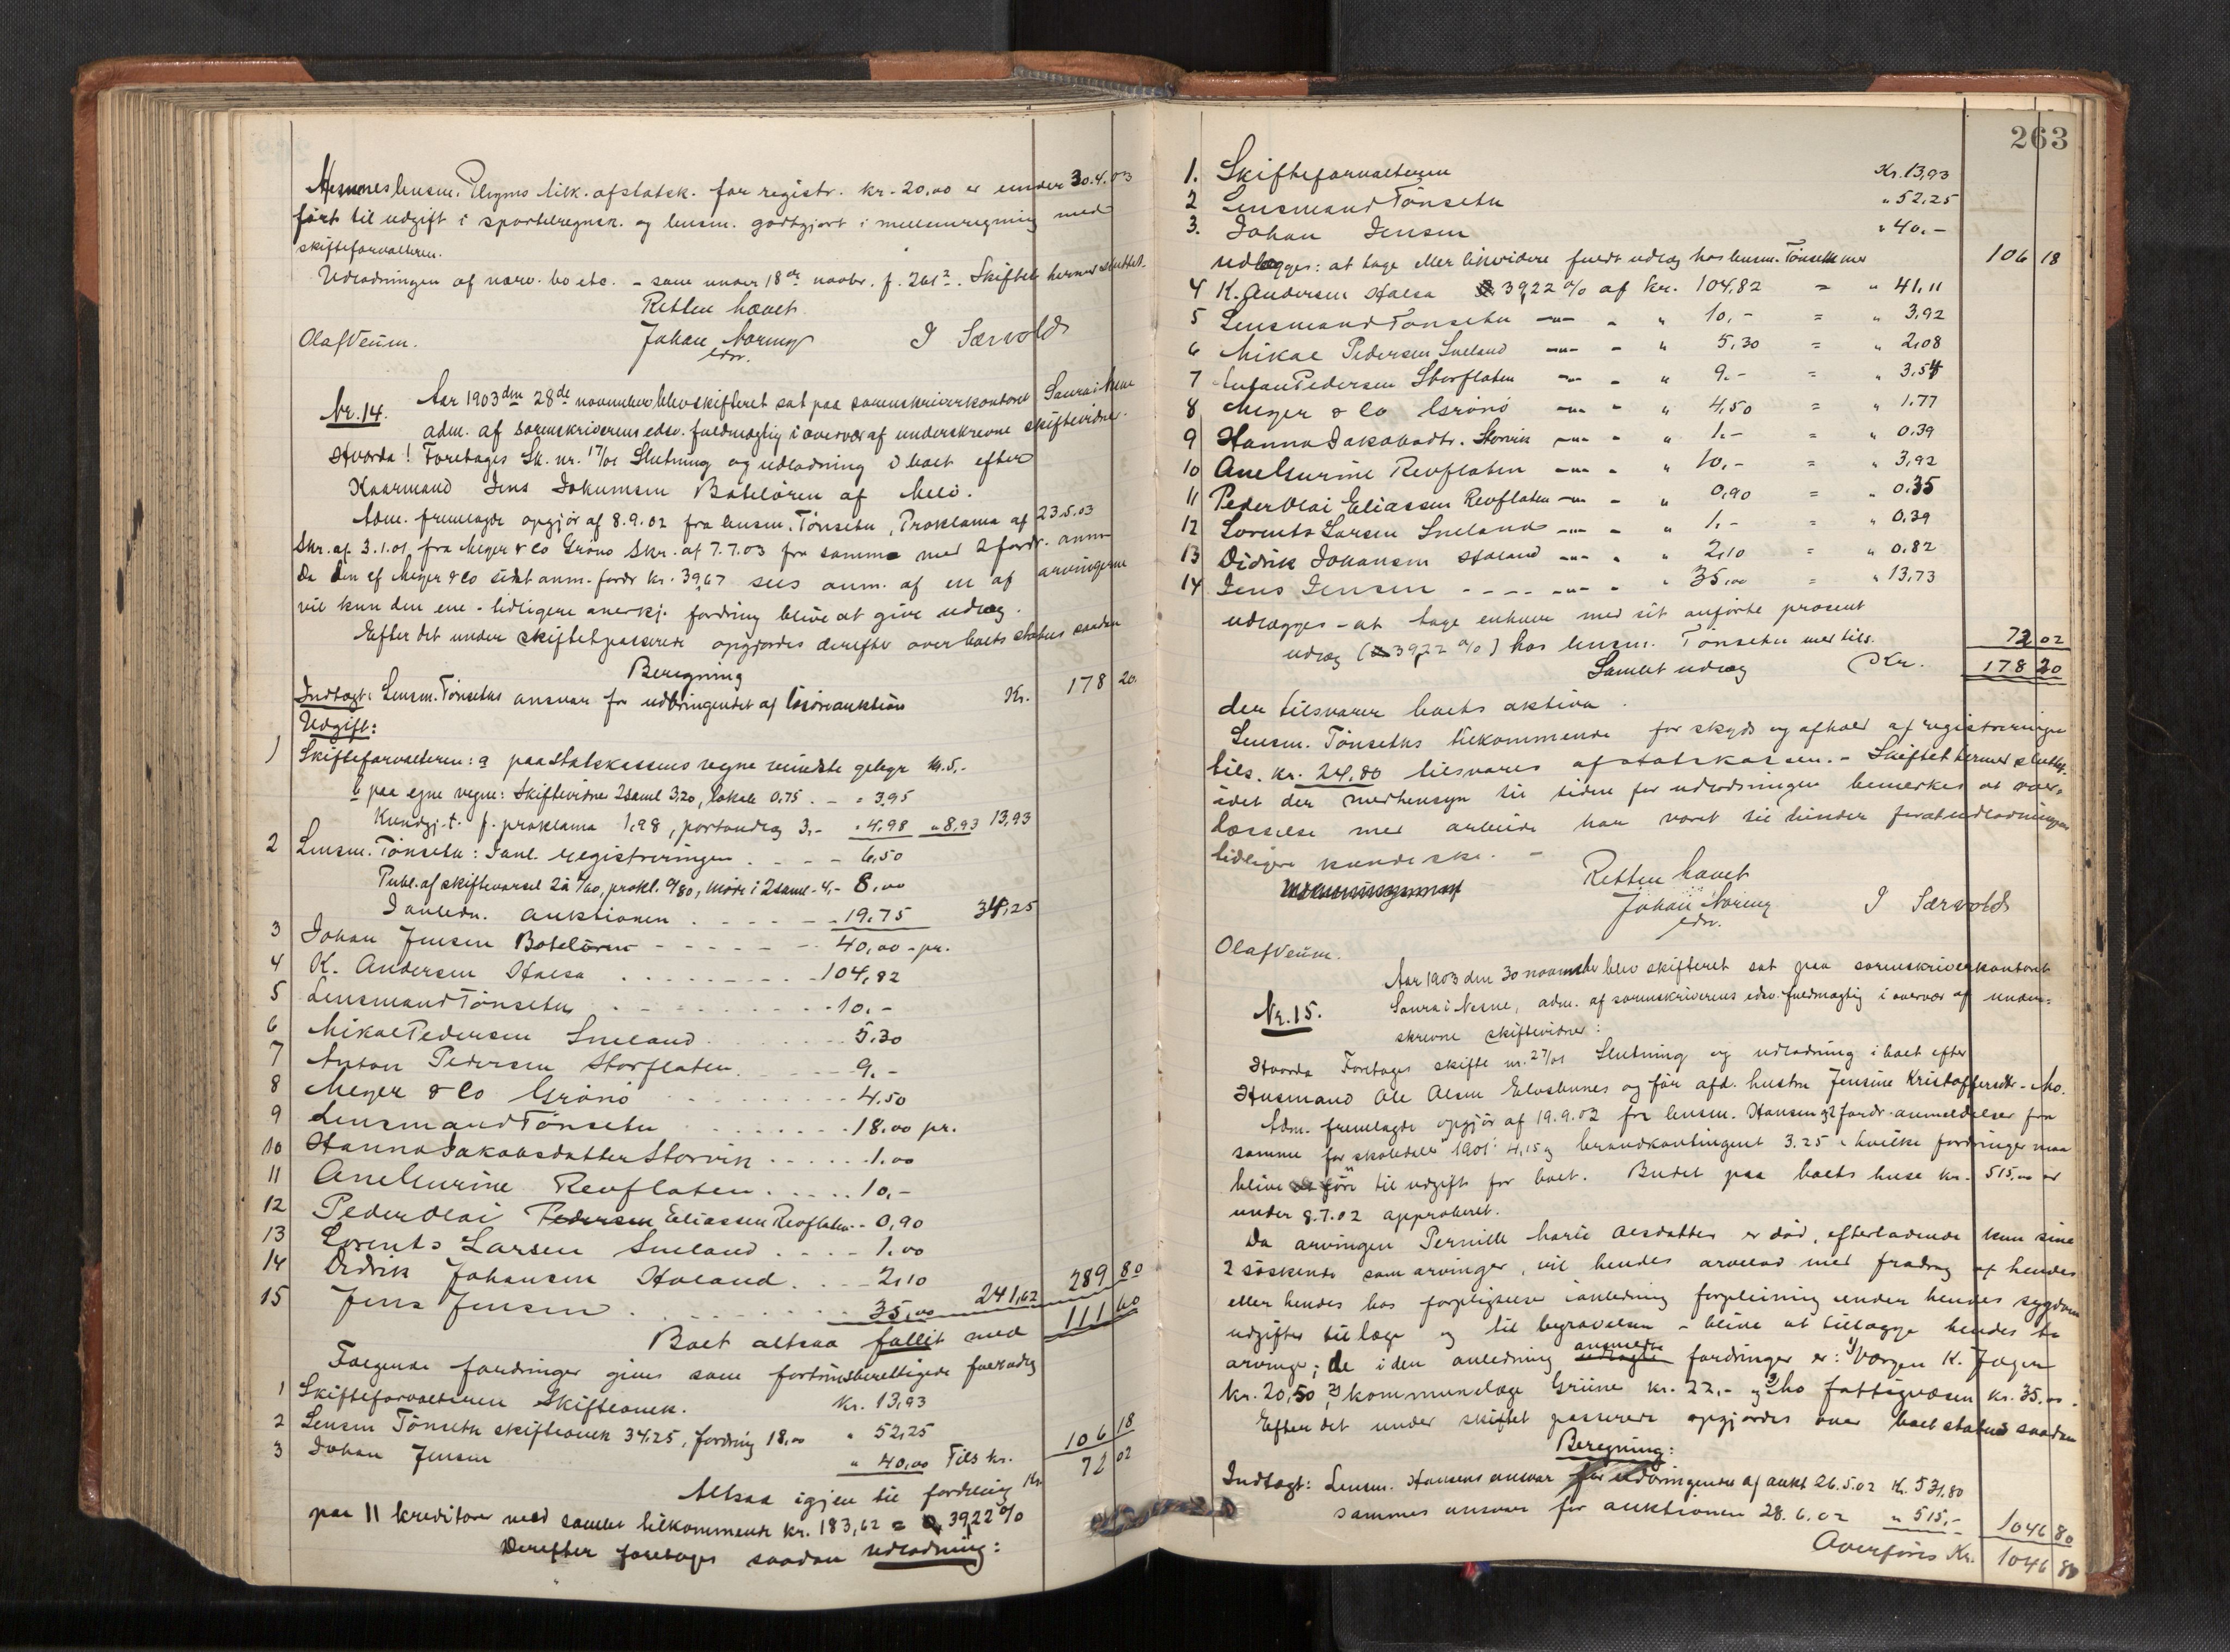 Nesneslensm. tilk. afstatsk. for registr. kr. 20,00 er under 30.4.03
ført til udgift i sportelregnsk. og lensm. godtgjort i mellemregning med
skifteforvalteren.
Udlodningen af nærv. bo etc. - som under 18de novbr. f. 261 2. Skiftet hermed sluttet.
Retten hævet
Olaf Veum. Johan Noring J Særvold
edsv.
Nr. 14. Aar 1903 den 28de november blev skifteret sat paa sorenskriverkontoret Saura i Nesne
adm. af sorenskriverens edsv. fuldmægtig i overvær af underskrevne skiftevidner.
Hvorda! Foretages Sk. nr. 17/01 Slutning og udlodning i boet efter
Kaarmand Jens Jokumsen Boteløren af Melø.
Adm. fremlagde opgjør af 8.9.02 fra lensm. Tønseth, Proklama af 23.5.03
Skr. af 3.1.01 fra Meyer & Co Grønø Skr. af 7.7.03 fra samme med 2 fordr. anm
Da den af Meyer & Co sidst anm. fordr kr. 39,67 sees anm. af en af arvingerne
vil kun den ene - tidligere anerkj. fordring blive at give udlæg.
Efter det under skiftet passerede opgjordes derefter over boets status saadan
Beregning
Indtægt: Lensm. Tønseths ansvar for udbringendet af løsøreauktion Kr. 178 20.
Udgift:
1 Skifteforvalteren: a paa Statskassens vegne mindste gebyr kr. 5,-
b paa egne vegne: Skiftevidner 2 saml 3,20, lokale 0,75 . - " 3,95
Kundgj. t. f. proklama 1,98, portoudlæg 3,- " 4,98 " 8,93 13,93
2 Lensm. Tønseth: I anl. registreringen . - - - 6,50
Publ. af skiftevarsel 2 à 0/60, prokl. 0/80, møde i 2 saml. 4,- 8,00
I anledn. auktionen . - - - - 19,75 34,25
3 Johan Jensen Boteløren - - - - - - 40,00 - pr.
4 K. Andersen Halsa . . . . . . . 104,82
5 Lensmand Tønseth . . . . . . . 10.-
6 Mikal Pedersen Sneland . . . . . 5.30
7 Anton Pedersen Storflaten . . . . 9.-
8 Meyer & Co Grønø . . . . . . 4.50
9 Lensmand Tønseth . . . . . . 18.00 pr.
10 Hanna Jakobsdatter Storvik . . . . . 1.00
11 Ane Gurine Revflaten . . . . . 10,-
12 Peder Olai Pedersen Eliassen Revflaten - 0,90
13 Lorents Larsen Sneland . . . . 1.00
14 Didrik Johansen Haland . . . - 2,10
15 Jens Jensen . . . . . . . 35,00 241,62 289 80
Boet altsaa fallit med 111 60
Følgende fordringer gives som fortrinsberettigede fuld udlæg
1 Skifteforvalteren Skifteomk. kr. 13,93
2 Lensm Tønseth skifteomk 34.25, fordring 18,00 " 52,25
3 Johan Jensen " 40,00 Tils kr. 106 18
Altsaa igjen til fordeling Kr 72 02
paa 11 kreditorer med samlet tilkommende kr. 183,62 = 39,22 %
Derefter foretages saadan udlodning:
263
1. Skifteforvalteren Kr. 13,93
2 Lensmand Tønseth " 52,25
3. Johan Jensen " 40.-
udlægges: at tage eller likvidere fuldt udlæg hos lensm. Tønseth med 106 18
4 K. Andersen Halsa 39,22 % af kr. 104,82 = " 41,11
5 Lensmand Tønseth -"- - " 10,- = " 3,92
6 Mikal Pedersen Sneland -"- - " 5,30 = " 2,08
7 Anton Pedersen Storflaten -"- - " 9.- = " 3,54
8 Meyer & Co Grønø -"- - " 4,50 = " 1.77
9 Hanna Jakobsdtr. Storvik -"- - " 1.- = " 0.39
10 Ane Gurine Revflaten -"- - " 10,- = " 3,92
11 Peder Olai Eliassen Revflaten -"- - " 0,90 = " 0.35
12 Lorents Larsen Sneland -"- - " 1.- = " 0,39
13 Didrik Johansen Haland -"- - " 2,10 = " 0.82
14 Jens Jensen - - - - -"- - " 35,00 = " 13,73
udlægges - at tage enhver med sit anførte procent
udlæg (39,22 %) hos lensm. Tønseth med tils. 72 02
Samlet udlæg Kr. 178 20
der tilsvarer boets aktiva.
Lensm. Tønseths tilkommende for skyds og afhold af registreringen
tils. kr. 24,80 tilsvares af statskassen. - Skiftet hermed sluttet.
idet der medhensyn til tiden for udlodningen bemerkes at over-
læsselse med arbeide har været til hinder for at udlodningen
tidligere kunde ske. -
Retten hævet
Johan Noring J Særvold
edsv.
Olaf Veum.
Nr. 15. Aar 1903 den 30 november blev skifteret sat paa sorenskriverkontoret
Saura i Nesne, adm. af sorenskriverens edsv. fuldmægtig i overvær af under-
skrevne skiftevidner:
Hvorda Foretages skifte nr. 27/01 Slutning og udlodning i boet efter
Husmand Ole Olsen og før afd. hustru Jensine Kristoffersdtr - Mo.
Adm. fremlagde opgjør af 19.9.02 fra lensm. Hansen og 2 fordr. anmeldelser fra
samme for skoledele 1901: 4,15 og brandkontingent 3.25 - hvilke fordringer maa
blive at føre til udgift for boet. Budet paa boets huse kr. 515,00 er
under 8.7.02 approberet.
Da arvingen Pernille Marie Olsdatter er død, efterladende kun sine
2 søskende som arvinger, vil hendes arvelod med fradrag af hendes
eller hendes bos forpligtelser i anledning forpleining under hendes sygdom
udgifter til læge og til begravelsen - blive at tillægge hendes to
arvinge; de i den anledning udlagte anmeldte fordringer er: 1) Værgen K. Jæger
kr. 20,50, 2) kommunelæge Grüne kr. 22,- og 3) Mo fattigvæsen kr. 35,00.
Efter det under skiftet passerede opgjordes over boets status saadan
Beregning:
Indtægt: Lensm. Hansens ansvar for udbringendet af aukt 26.5.02 Kr. 531,80
sammes ansvar for auktionen 28.6.02 " 515,- 1046 80
Overføres Kr. 1046 80